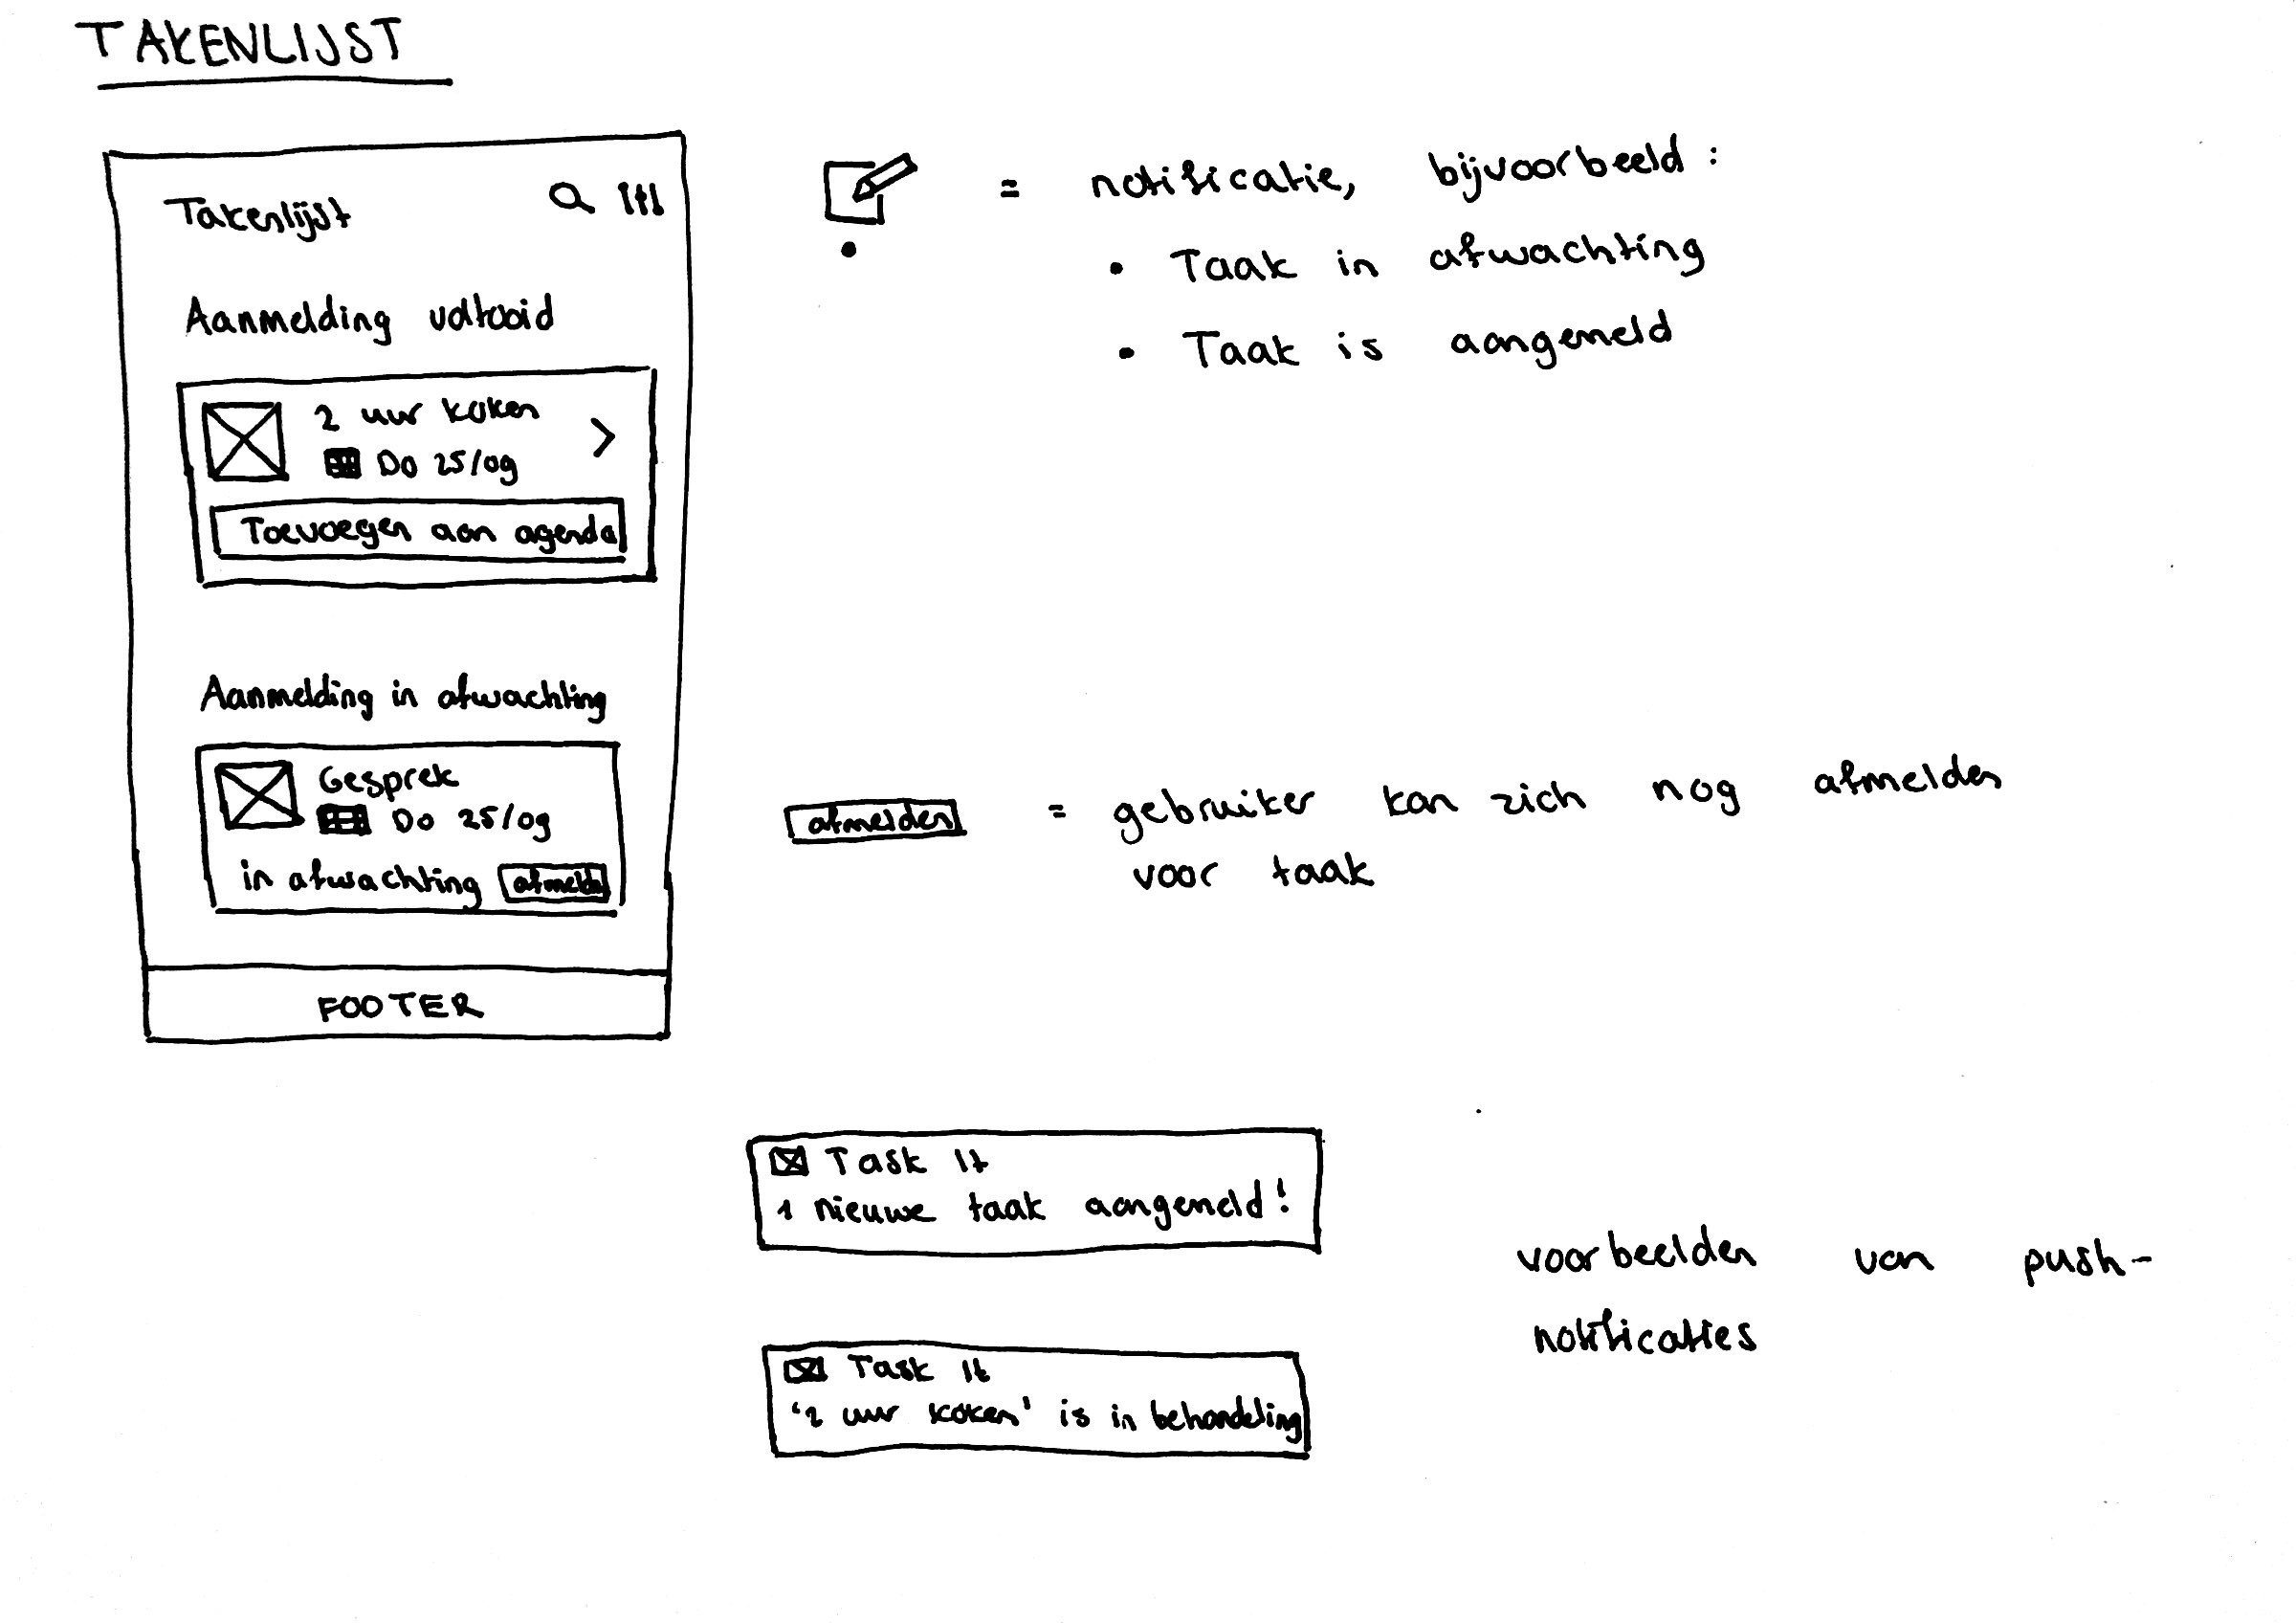 TAKENLIJST
Takenlijst
Aanmelding voltooid
2 uur koken
Do 25/09
Toevoegen aan agenda
Aanmelding in afwachting
Gesprek
Do 25/09
in afwachting afmelden
FOOTER
= notificatie, bijvoorbeeld:
• Taak in afwachting
• Taak is aangemeld
afmelden = gebruiker kan zich nog afmelden
voor taak
Task It
1 nieuwe taak aangemeld!
Task It
'2 uur koken' is in behandeling
voorbeelden van push-
notificaties